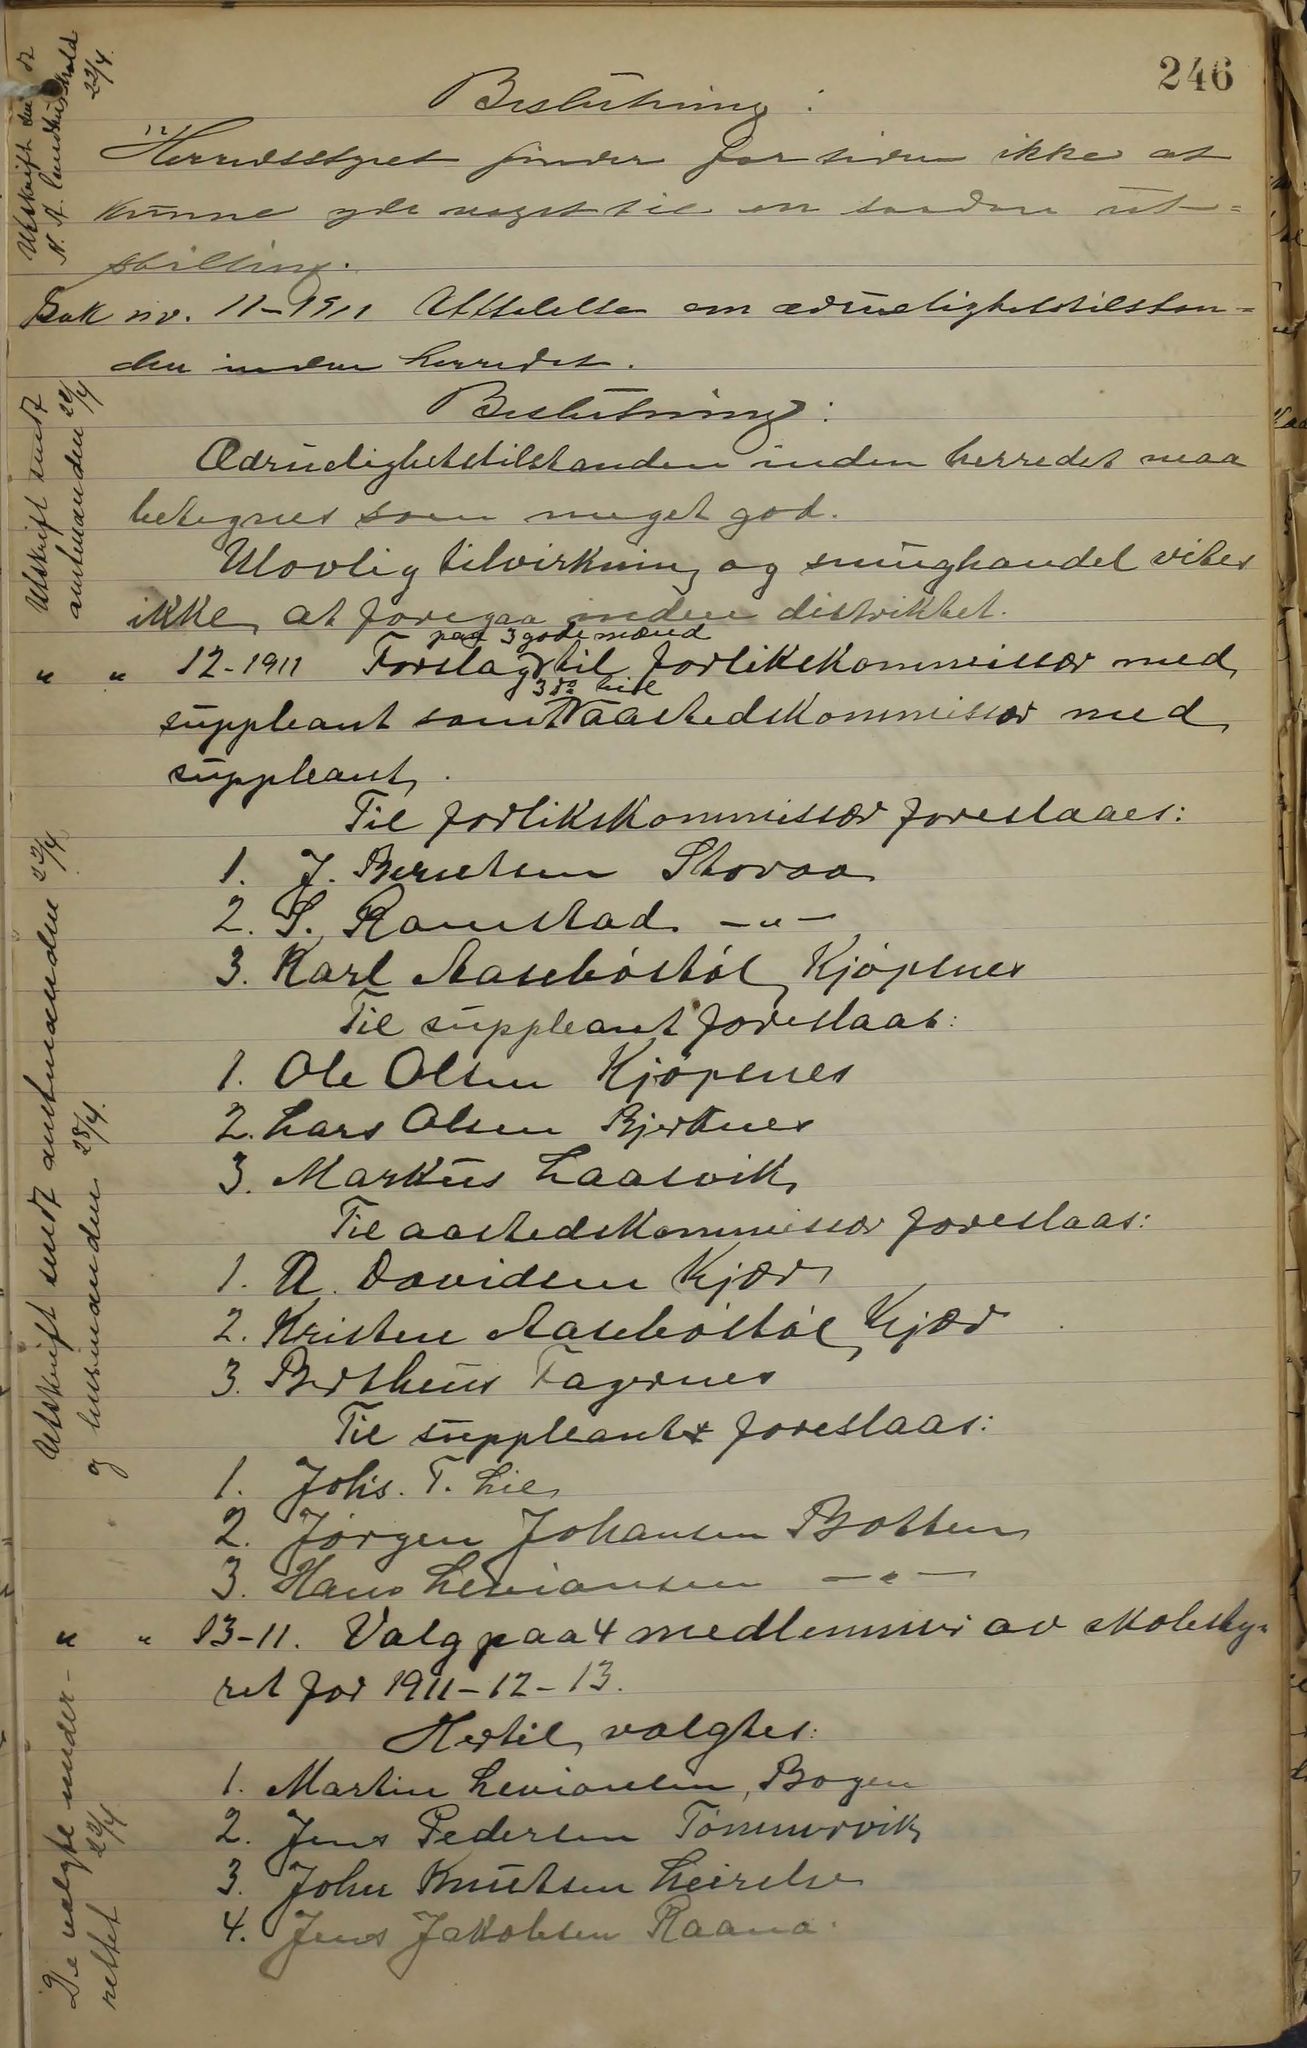 246
Beslutning:
"Herredsstyret finder for tiden ikke at
kunne yde noget til en saadan ut-
stilling.
Sak nr. 11-1911 Uttalelse om ædruelighetstilstan-
den inden herredet.
Beslutning:
Ædruelighetstilstanden inden herredet maa
betegnes som meget god.
Ulovlig tilvirkning og smughandel vites
ikke at foregaa inden distriktet.
paa 3 gode mænd
" " 12-1911 Forslag til forlikskommissær med
3 do til
suppleant samt aastedskommissær med
suppleant.
Til forlikskommissær foreslaaes:
1. J. Berntsen Storaa
2. S. Ramstad -"-
3. Karl Aasebøstøl Kjøpsnes
Til suppleant foreslaas:
1. Ole Olsen Kjøpsnes
2. Lars Olsen Bjerknes
3. Markus Laasvik
Til aastedskommissær foreslaas:
1. A. Davidsen Kjær
2. Kristen Aasebøstøl Kjær
3. Bertheus Fagernes
Til suppleant foreslaas:
1. Johs. T. Lie
2. Jørgen Johansen Botten
3. Hans Leviansen -"-
" " 13-11. Valg paa 4 medlemmer av skolesty-
ret for 1911-12-13.
Hertil valgtes:
1. Martin Leviansen, Bogen
2. Jens Pedersen Tømmervik
3. John Knutsen Leirelse
4. Jens Jakobsen Raana.
Utskrift sendt
N. A. landhushold
22/4.
Utskrift sendt
amtmanden 22/4
Utskrift sendt amtmanden 22/4
og lensmanden 28/4.
De valgte under-
rettet 22/4